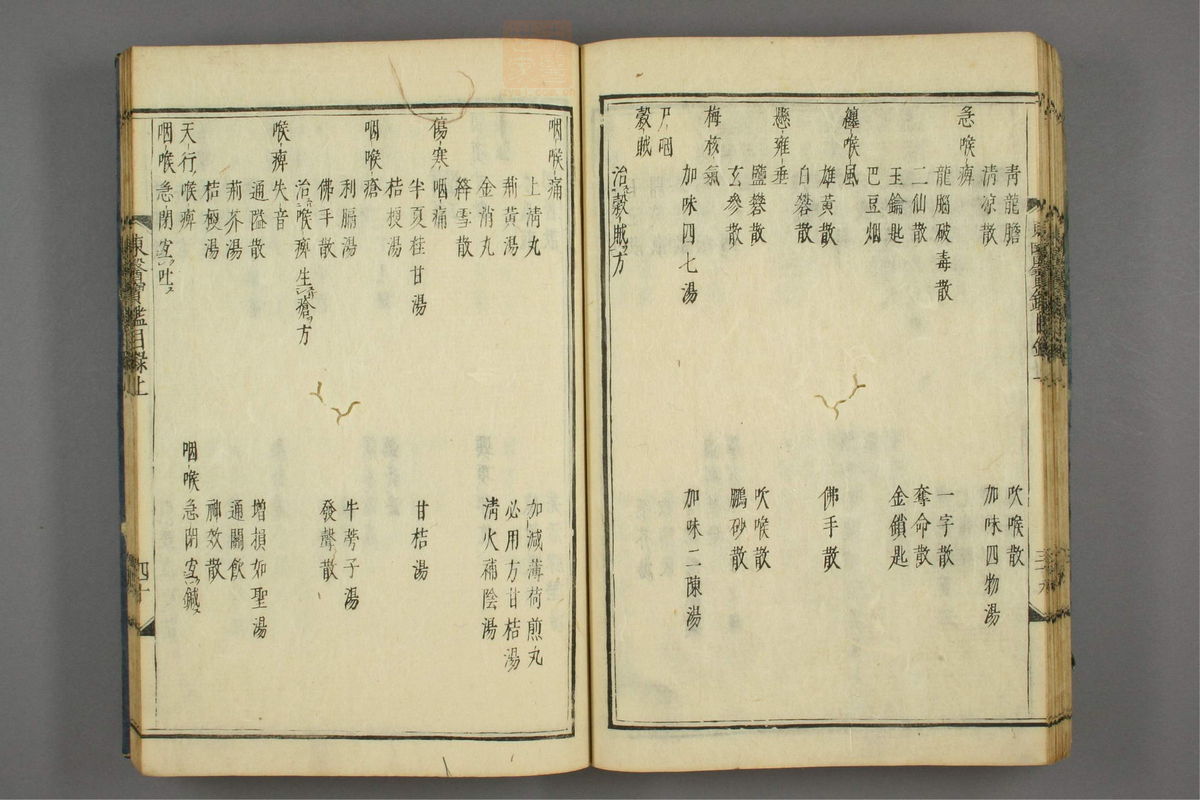 青龍膽
吹喉散
清凉散
加味四物湯
急喉痺
龍腦破毒散
一字散
二仙散
奪命散
玉鑰匙
金鎖匙
巴豆烟
纏喉風
雄黃散
佛手散
白礬散
懸雍垂
鹽礬散
吹喉散
玄參散
鵬砂散
梅核氣
加味四七湯
加味二陳湯
尸咽
穀賊
治穀賊方
咽喉痛
上清丸
加減薄荷煎丸
荊黃湯
必用方甘桔湯
金消丸
清火補陰湯
絳雪散
傷寒咽痛
半夏桂甘湯
甘桔湯
桔梗湯
咽喉瘡
利膈湯
牛蒡子湯
佛手散
發聲散
治喉痺生瘡方
喉痺失音
通隘散
增損如聖湯
荊芥湯
通關飲
桔梗湯
神效散
天行喉痺
咽喉急閉宜鍼
咽喉急閉宜吐
東醫寶鑑目錄上
四十